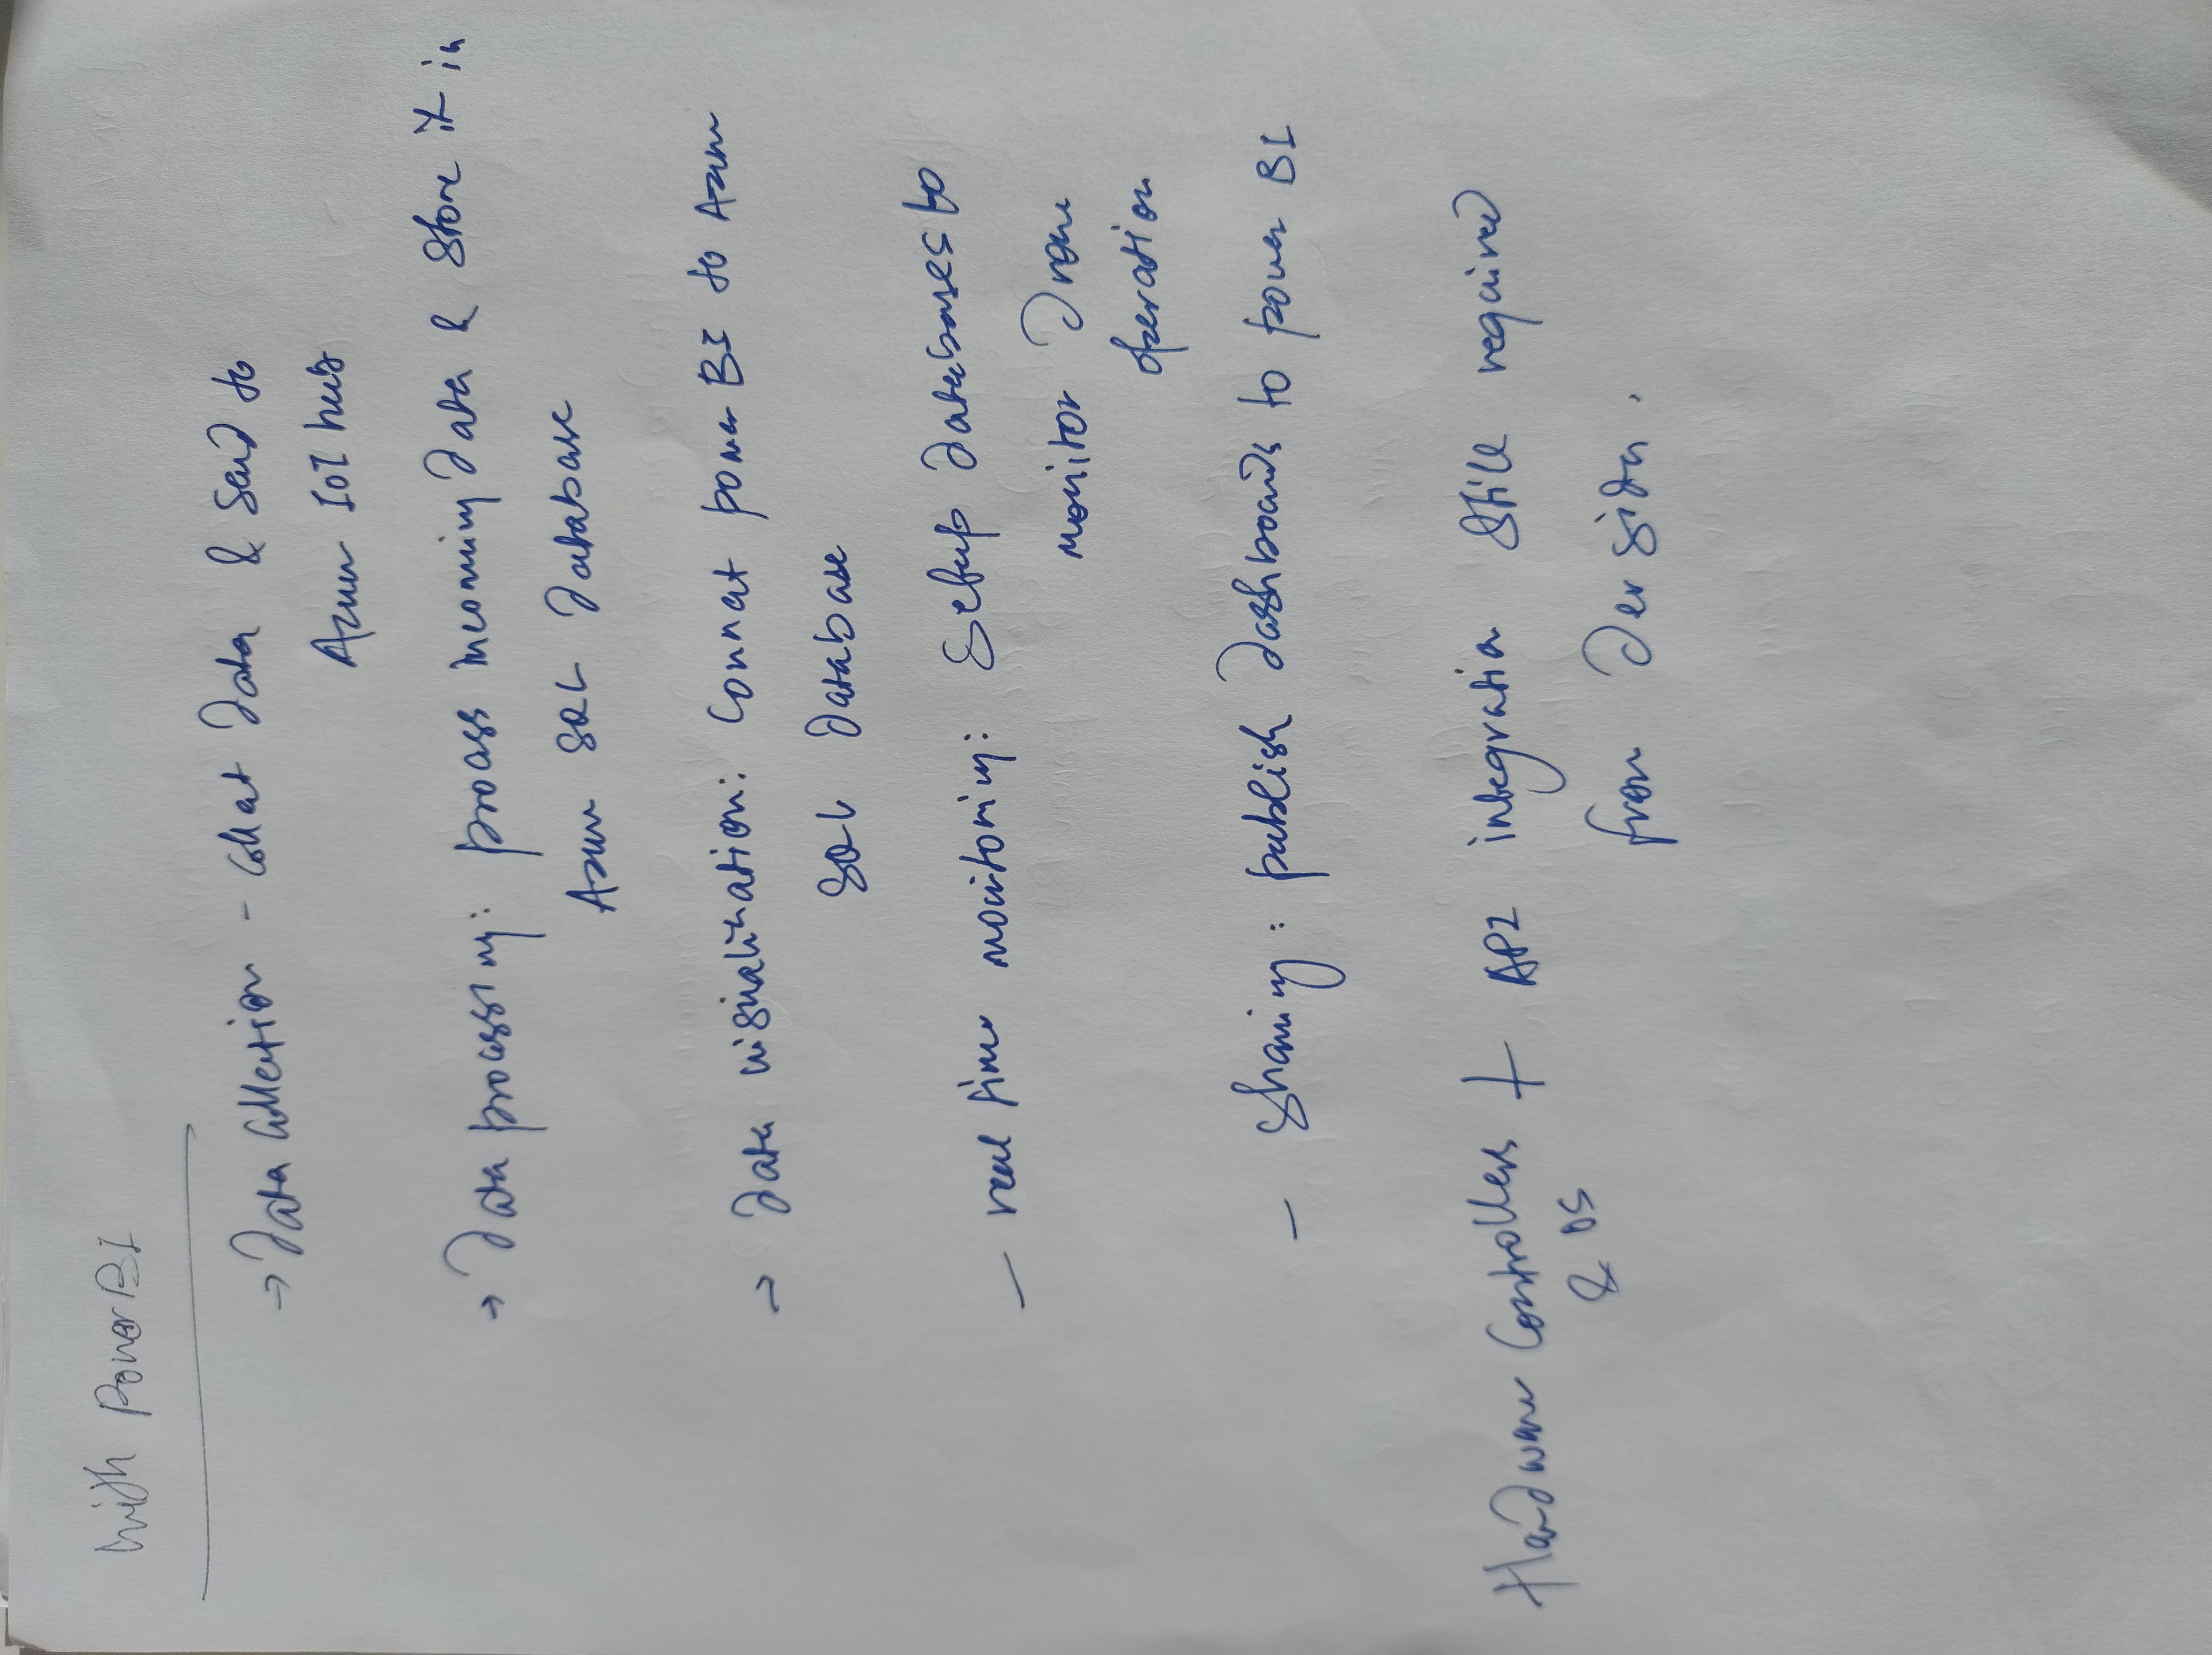 With Power BI
→ Data Collection - Collect Data & Send to
Azure IoT hub
→ Data processing: process incoming Data & Store it in
Azure SQL Database
→ Data visualization: Connect power BI to Azure
SQL Database
— real time monitoring: Setup Databases to
monitor Drone
operation
— Sharing: publish Dashboards to power BI
Hardware Controllers + API integration Still required
& OS
from Der sida.